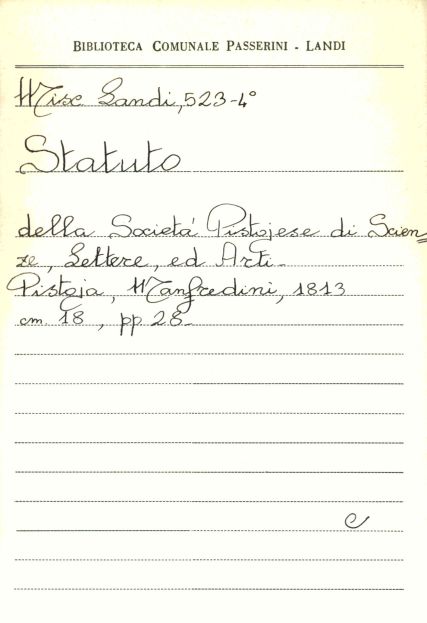 BIBLIOTECA COMUNALE PASSERINI - LANDI
Misc. Landi, 523-4°
Statuto
della Società Pistojese di Scien=
ze, Lettere, ed Arti-
Pistoja, Manfredini, 1813
cm. 18, pp. 28-
C